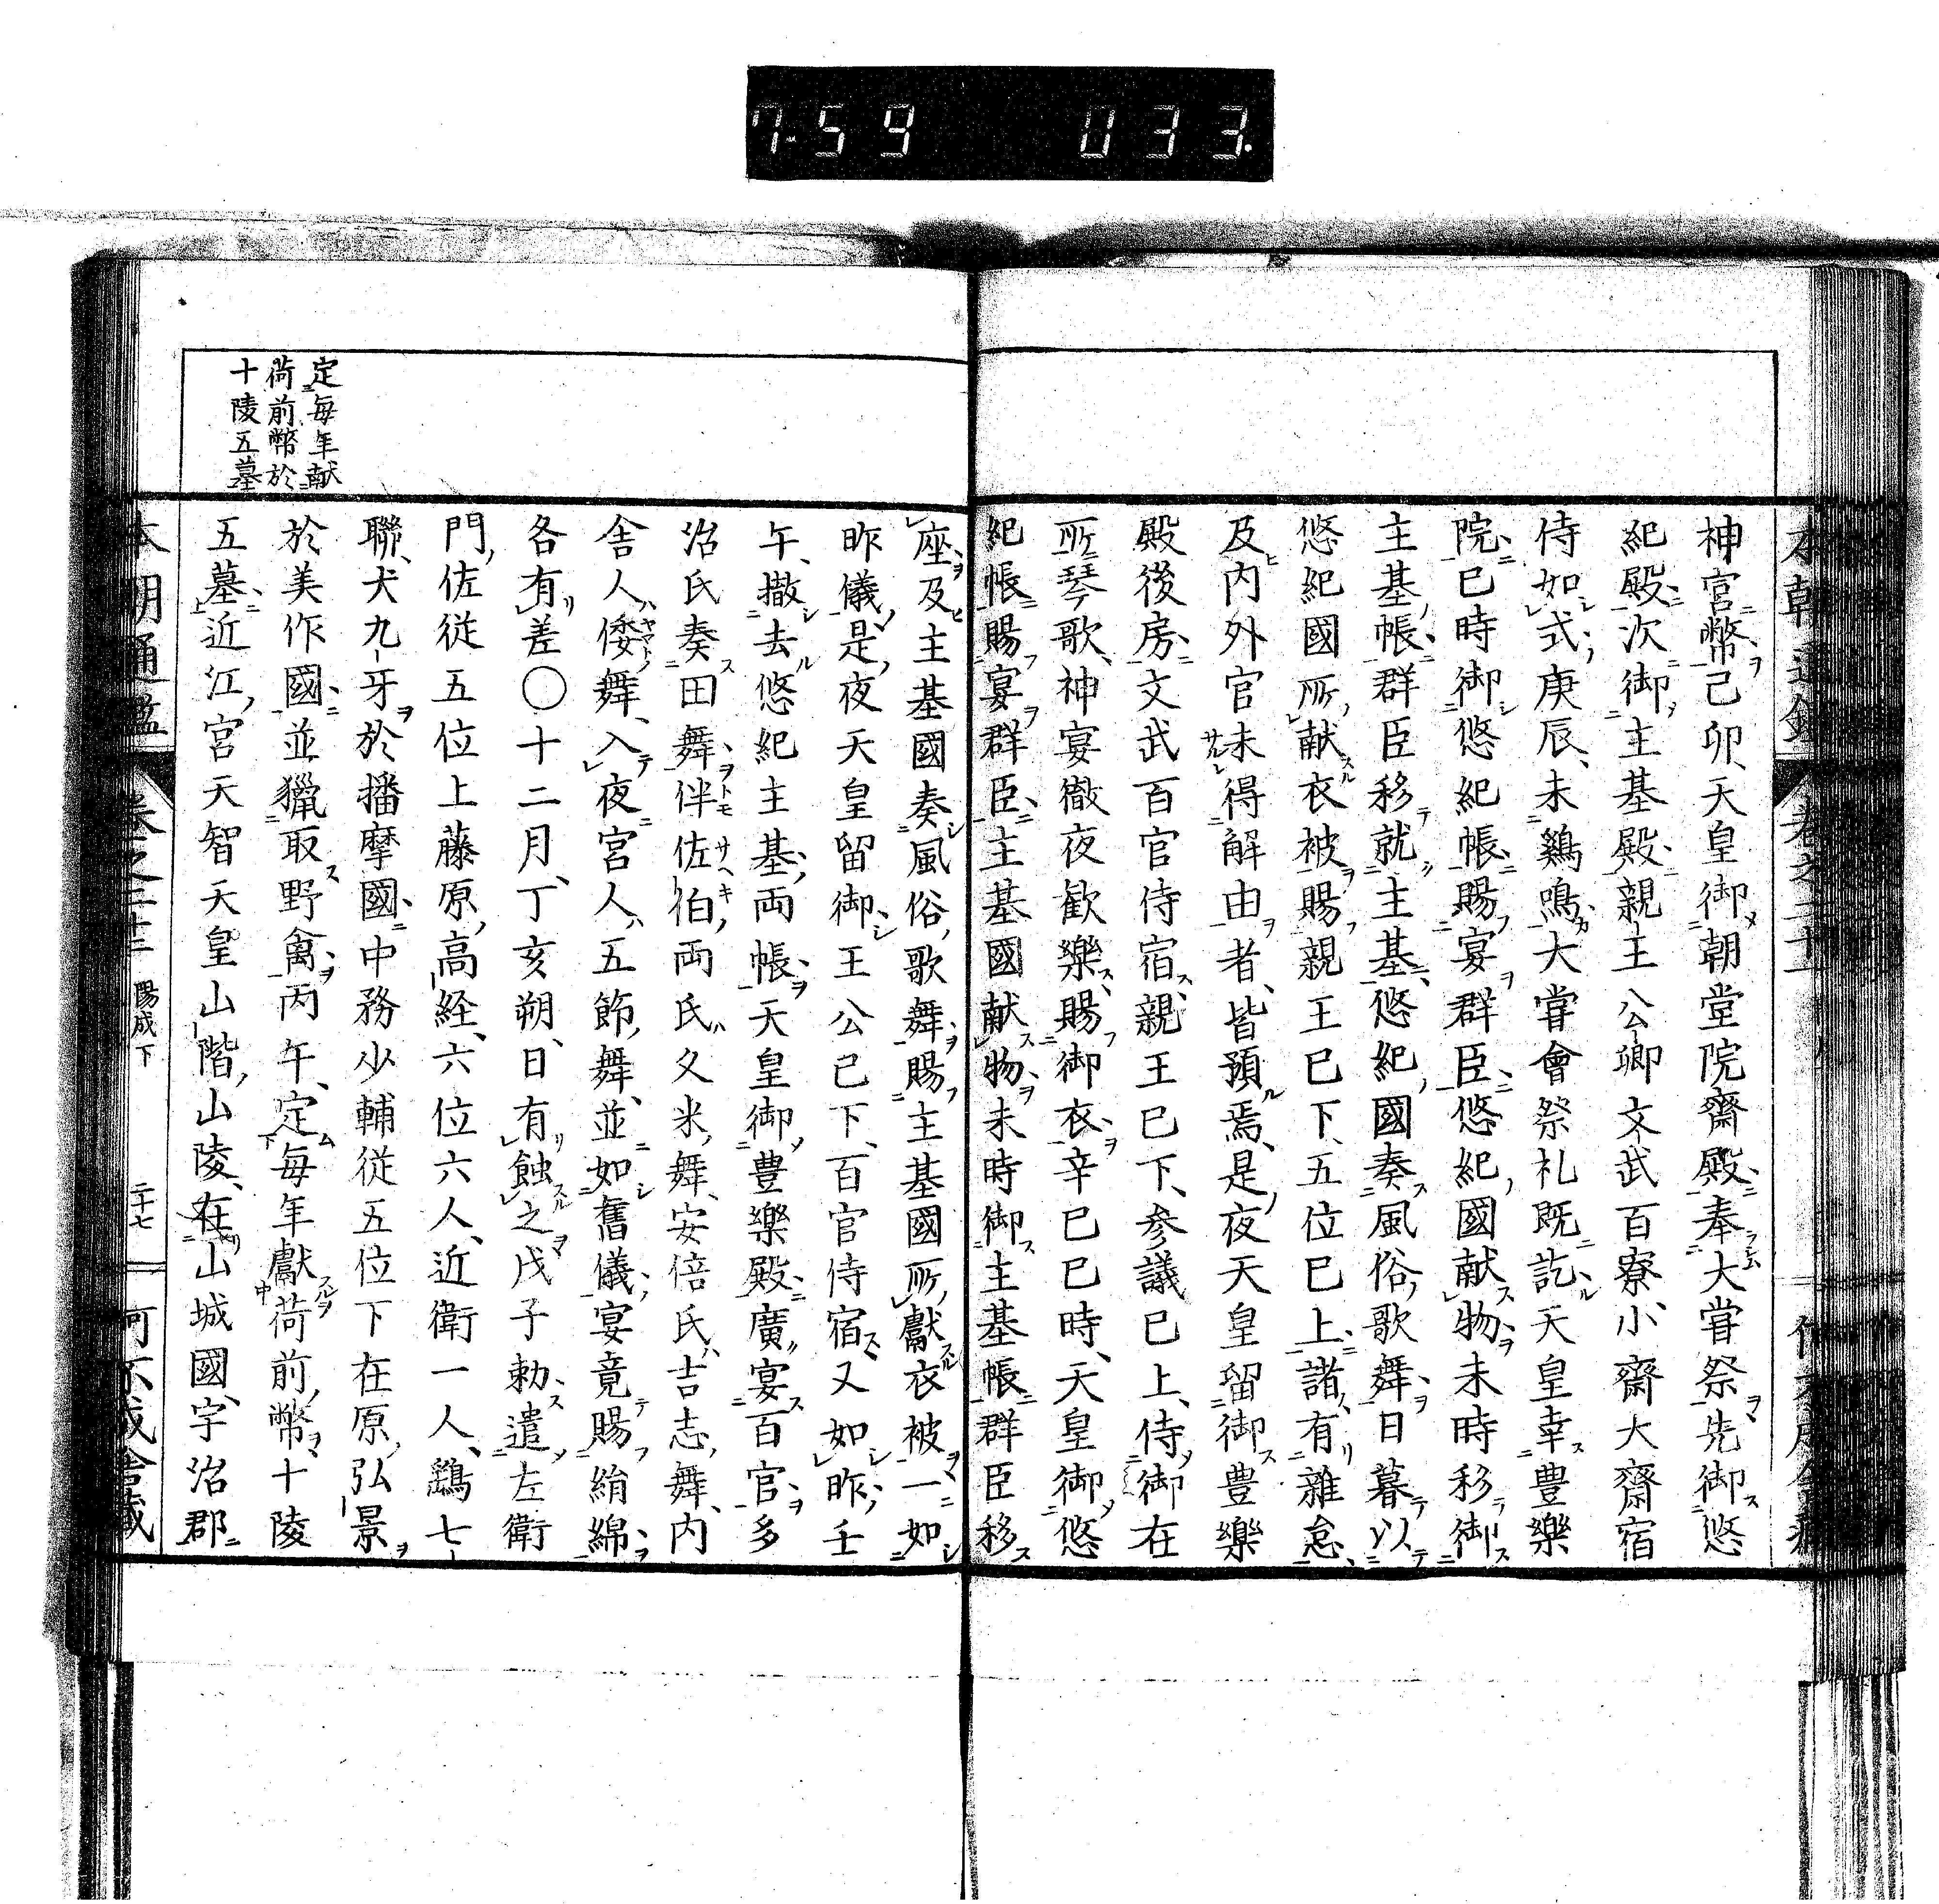 7-59 033.
神宮幣己卯天皇御朝堂院齋殿奉大甞祭先御悠
紀殿次御主基殿親王公卿文武百寮小齋大齋宿
侍如式庚辰未鷄鳴大甞會祭礼既訖天皇幸豊樂
院巳時御悠紀帳賜宴群臣悠紀國献物未時移御
主基帳群臣移就主基悠紀國奏風俗歌舞日暮以
悠紀國所献衣被賜親王已下五位已上諸有雜怠
及内外官未得解由者皆預焉是夜天皇留御豊樂
殿後房文武百官侍宿親王已下参議已上侍御在
所琴歌神宴徹夜歓樂賜御衣辛巳巳時天皇御悠
紀帳賜宴群臣主基國献物未時御主基帳群臣移
座及主基國奏風俗歌舞賜主基國所獻衣被一如
昨儀是夜天皇留御王公已下百官侍宿又如昨壬
午撤去悠紀主基両帳天皇御豊樂殿廣宴百官多
治氏奏田舞伴佐伯両氏久米舞安倍氏吉志舞内
舎人倭舞入夜宮人五節舞並如舊儀宴竟賜絹綿
各有差〇十二月丁亥朔日有蝕之戊子勅遣左衛
門佐従五位上藤原高経六位六人近衛一人鷂七
聯犬九牙於播摩國中務少輔従五位下在原弘景
於美作國並獵取野禽丙午定毎年獻荷前幣十陵
五墓近江宮天智天皇山階山陵在山城國宇治郡
定毎年献
荷前幣於
十陵五墓
本朝通鑑 卷之二十三 陽成下 二十七